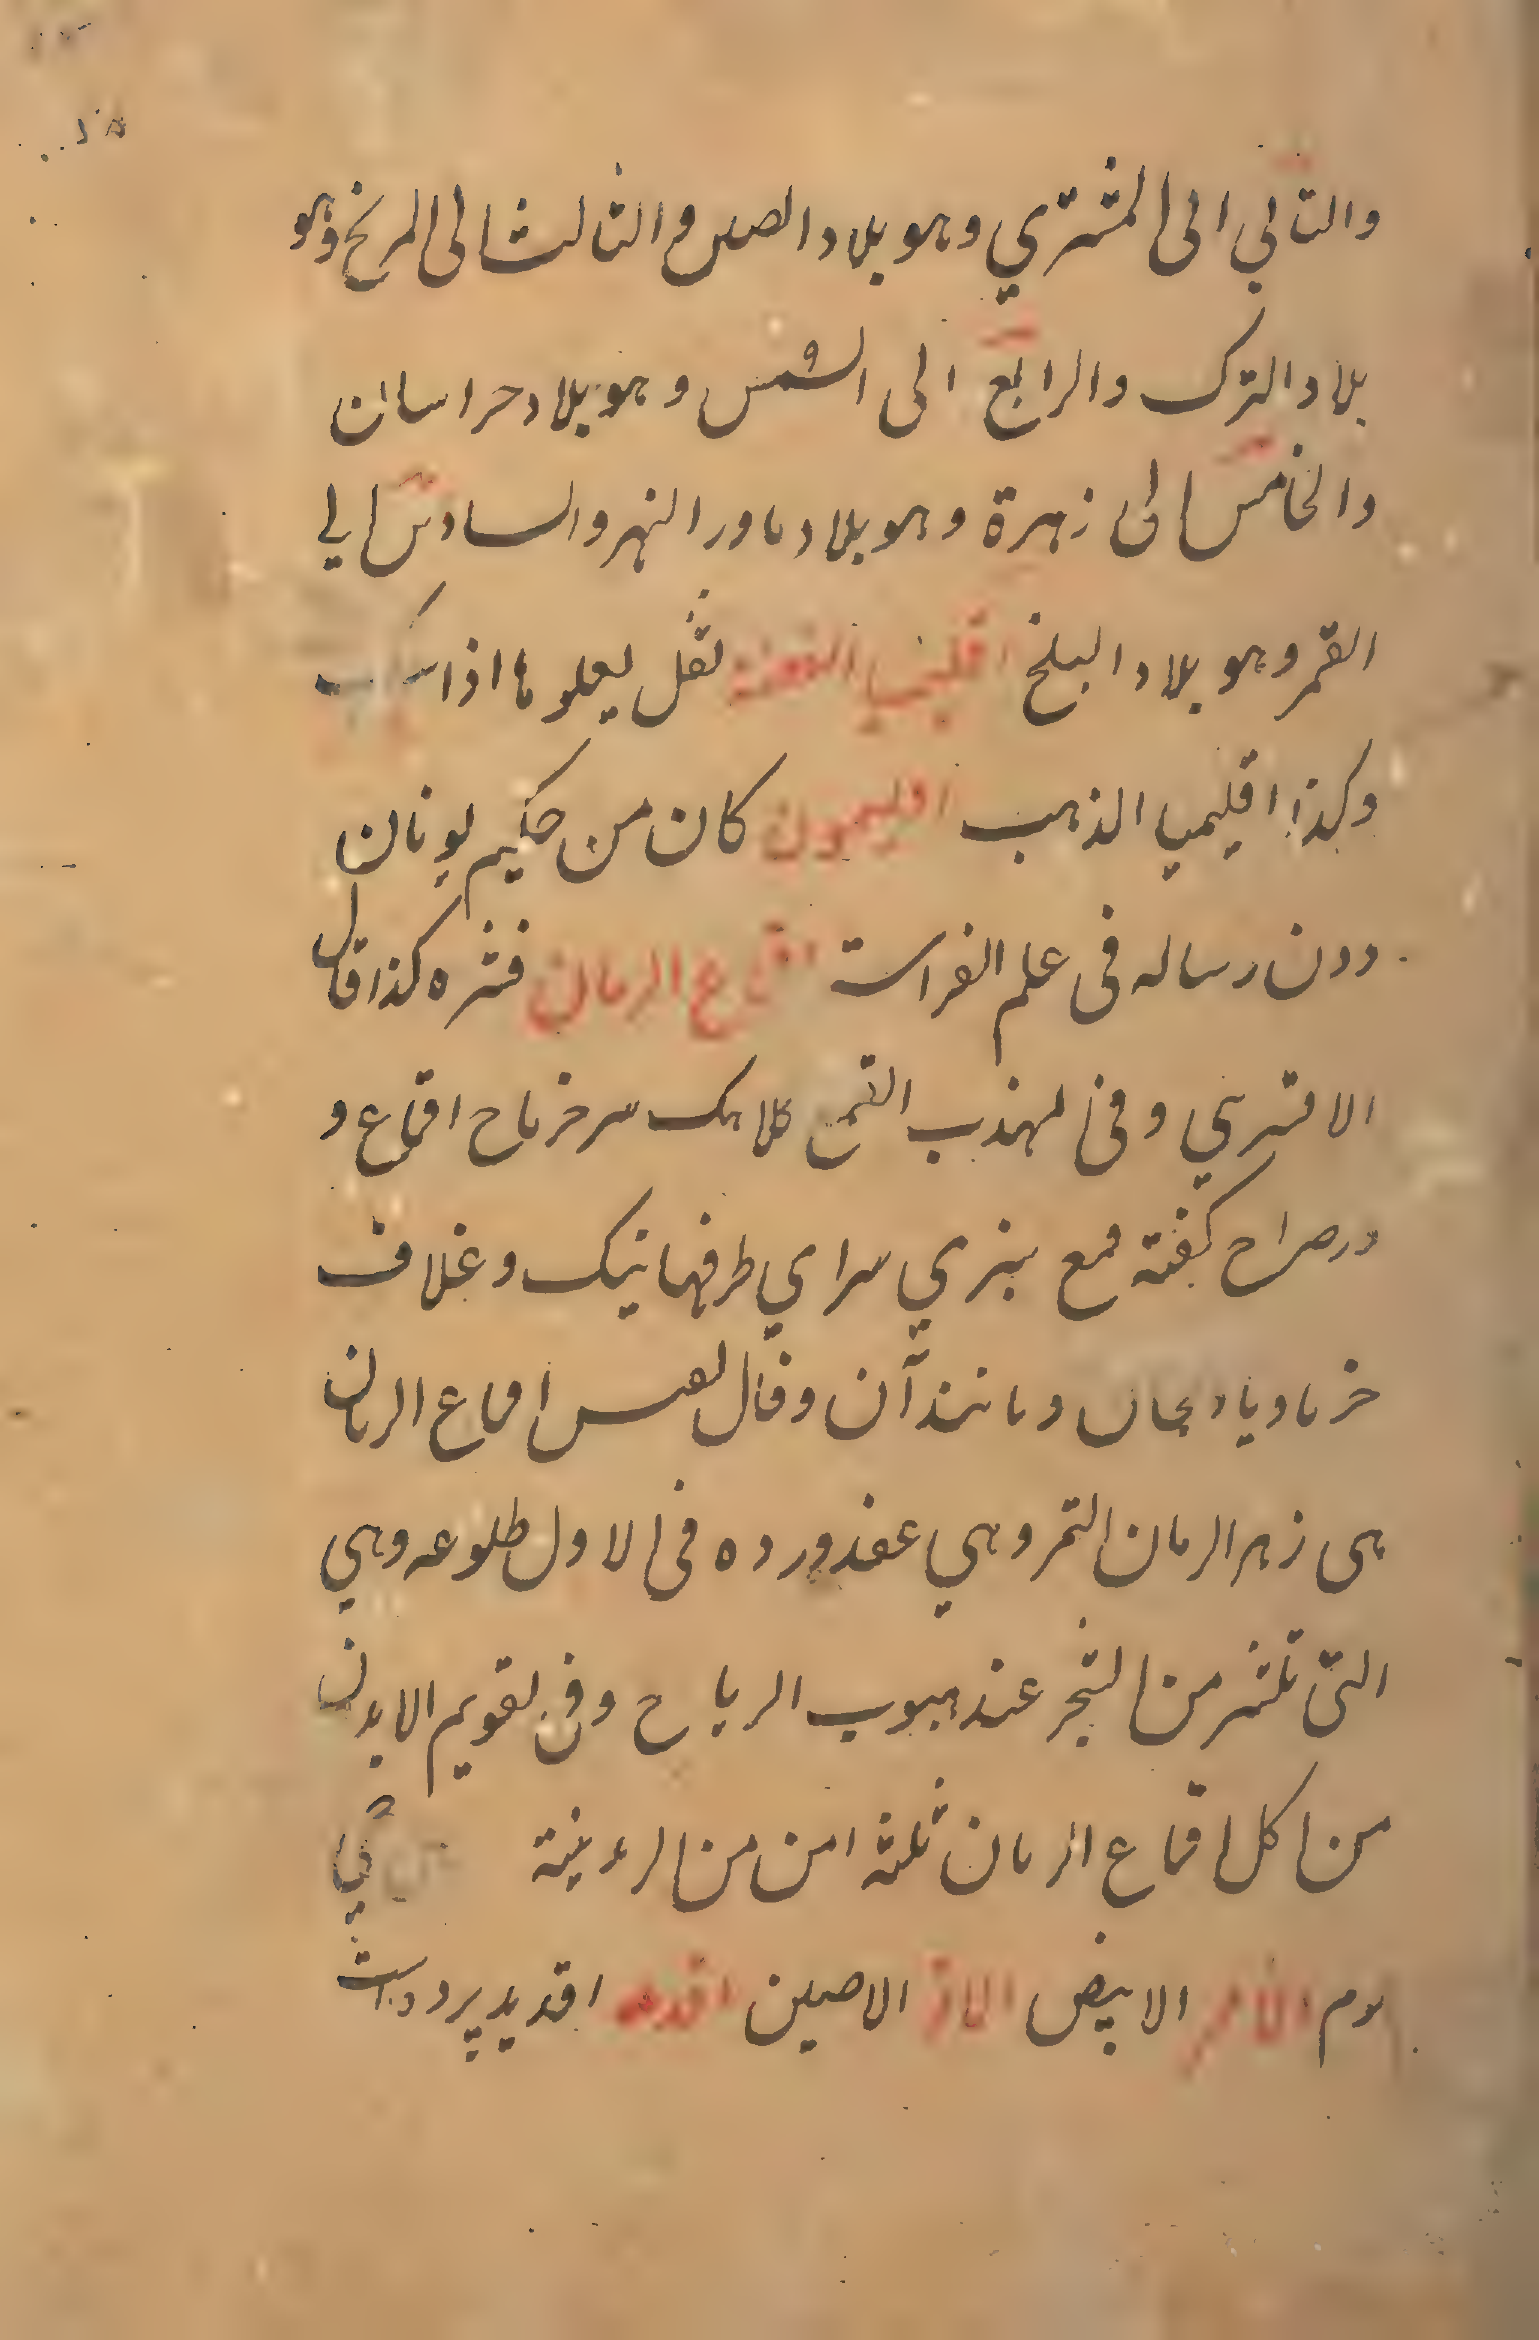 والثاني الى المشتري وهو بلاد الصين والثالث الى المريخ وهو
بلاد الترك والرابع الى الشمس وهو بلاد خراسان
والخامس الى زهرة وهو بلاد ماورا النهر والسادس الي
القمر وهو بلاد البلخ اقليميا الفضة ثفل يعلوها اذا سبكت
وكذا اقليميا الذهب اقليمون كان من حكيم يونان
دون رساله فى علم الفراسة اقماع الرمان قشره كذا قال
الاقسري وفى المهذب القمع كلاهك سر خرما ح اقماع و
در صراح كفته قمع بنري سراي طرفهاتنك وغلاف
خرما و بادنجان و مانند آن وقال نفيس اقماع الرمان
هى زهر الرمان الثمر وهي عقد ورده فى الاول طلوعه وهي
التى تلنثر من الشجر عند هبوب الرياح وفى تقويم الابدن
من اكل اقماع الرمان ثلثه امن من
الابيض الاصين اقديد پر دوراست